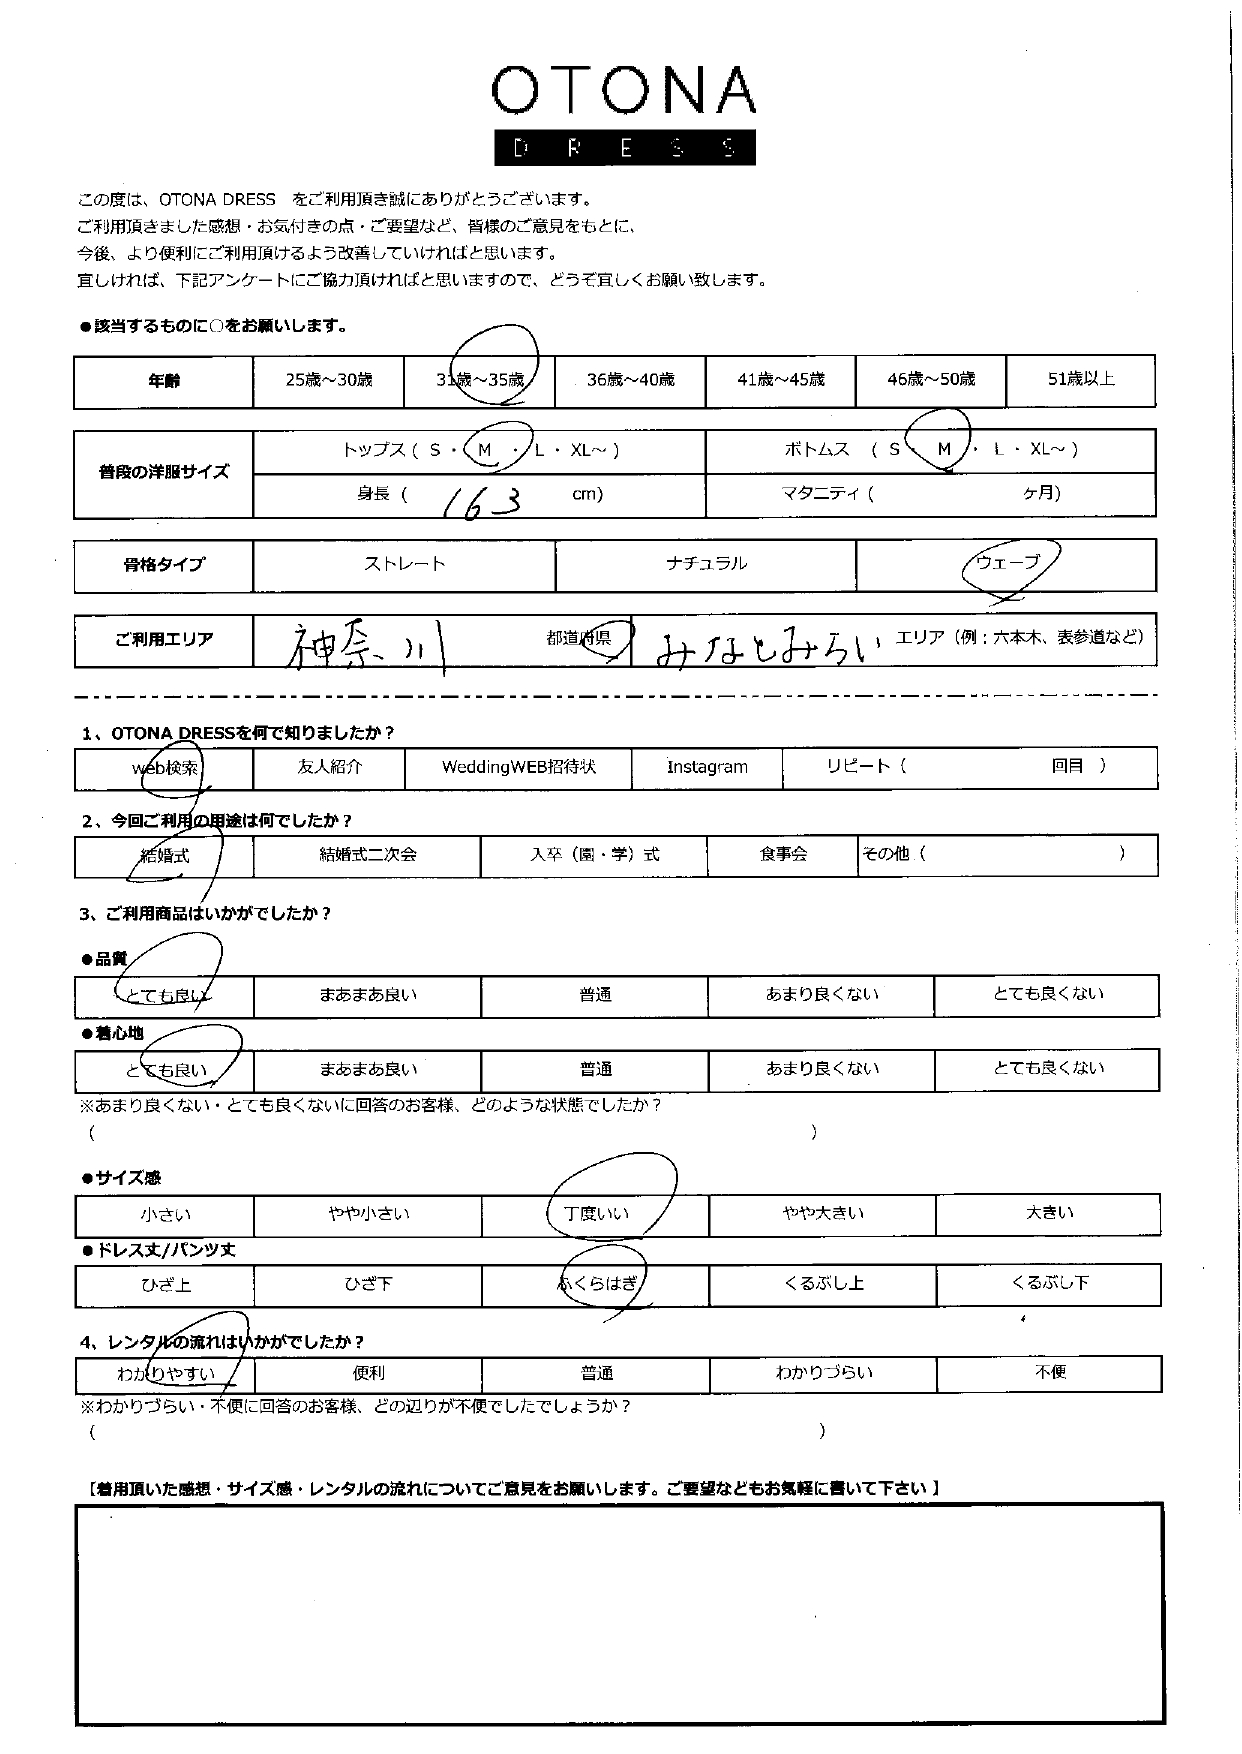 OTONA
DRESS
この度は、OTONA DRESS　をご利用頂き誠にありがとうございます。
ご利用頂きました感想・お気付きの点・ご要望など、皆様のご意見をもとに、
今後、より便利にご利用頂けるよう改善していければと思います。
宜しければ、下記アンケートにご協力頂ければと思いますので、どうぞ宜しくお願い致します。
●該当するものに○をお願いします。
年齢 25歳～30歳 31歳～35歳 36歳～40歳 41歳～45歳 46歳～50歳 51歳以上
普段の洋服サイズ トップス ( S ・ M ・ L ・ XL～ ) ボトムス ( S ・ M ・ L ・ XL～ )
身長 ( 163 cm) マタニティ ( ヶ月)
骨格タイプ ストレート ナチュラル ウェーブ
ご利用エリア 神奈川 都道府県 みなとみらい エリア（例：六本木、表参道など）
1、OTONA DRESSを何で知りましたか？
web検索 友人紹介 WeddingWEB招待状 Instagram リピート（ 回目 ）
2、今回ご利用の用途は何でしたか？
結婚式 結婚式二次会 入卒（園・学）式 食事会 その他（ ）
3、ご利用商品はいかがでしたか？
●品質
とても良い まあまあ良い 普通 あまり良くない とても良くない
●着心地
とても良い まあまあ良い 普通 あまり良くない とても良くない
※あまり良くない・とても良くないに回答のお客様、どのような状態でしたか？
（ ）
●サイズ感
小さい やや小さい 丁度いい やや大きい 大きい
●ドレス丈/パンツ丈
ひざ上 ひざ下 ふくらはぎ くるぶし上 くるぶし下
4、レンタルの流れはいかがでしたか？
わかりやすい 便利 普通 わかりづらい 不便
※わかりづらい・不便に回答のお客様、どの辺りが不便でしたでしょうか？
（ ）
【着用頂いた感想・サイズ感・レンタルの流れについてご意見をお願いします。ご要望などもお気軽に書いて下さい 】